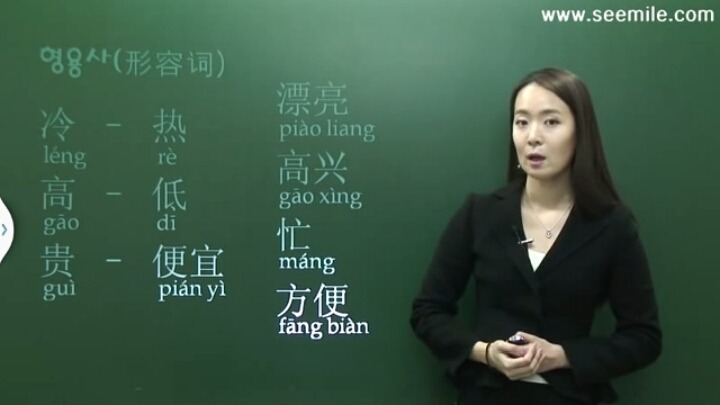 www.seemile.com
형용사(形容词)
冷 - 热
léng rè
高 - 低
gāo dī
贵 - 便宜
guì pián yì
漂亮
piào liang
高兴
gāo xìng
忙
máng
方便
fāng biàn